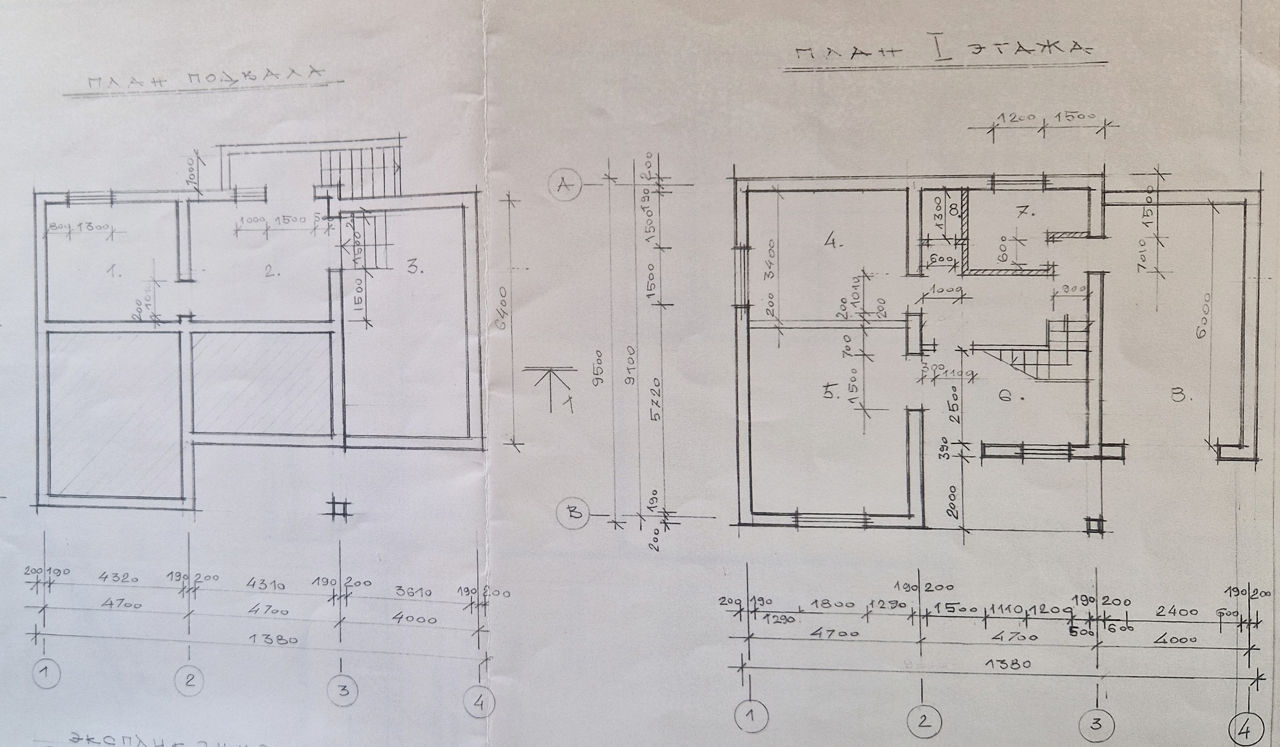 ПЛАН ПОДВАЛА
1000
800 1300
1000 1500
1500
1.
2.
3.
200
1500
6400
200 190 4320 190 200 4310 190 200 3610 190 200
4700 4700 4000
1380
1 2 3 4
ПЛАН I ЭТАЖА
1200 1500
А
В
9500
9100
200
190
1500
1500
5720
190
200
4.
3400
200
1300
8
7.
600
1500
7010
1000
200
1010
200
900
700
1500
5.
1100
6.
2500
390
2000
6000
8.
190 200 190 200 190 200
200 190 1800 1290 1500 1110 1200 2400
1290 500 600
4700 4700 4000
1380
1 2 3 4